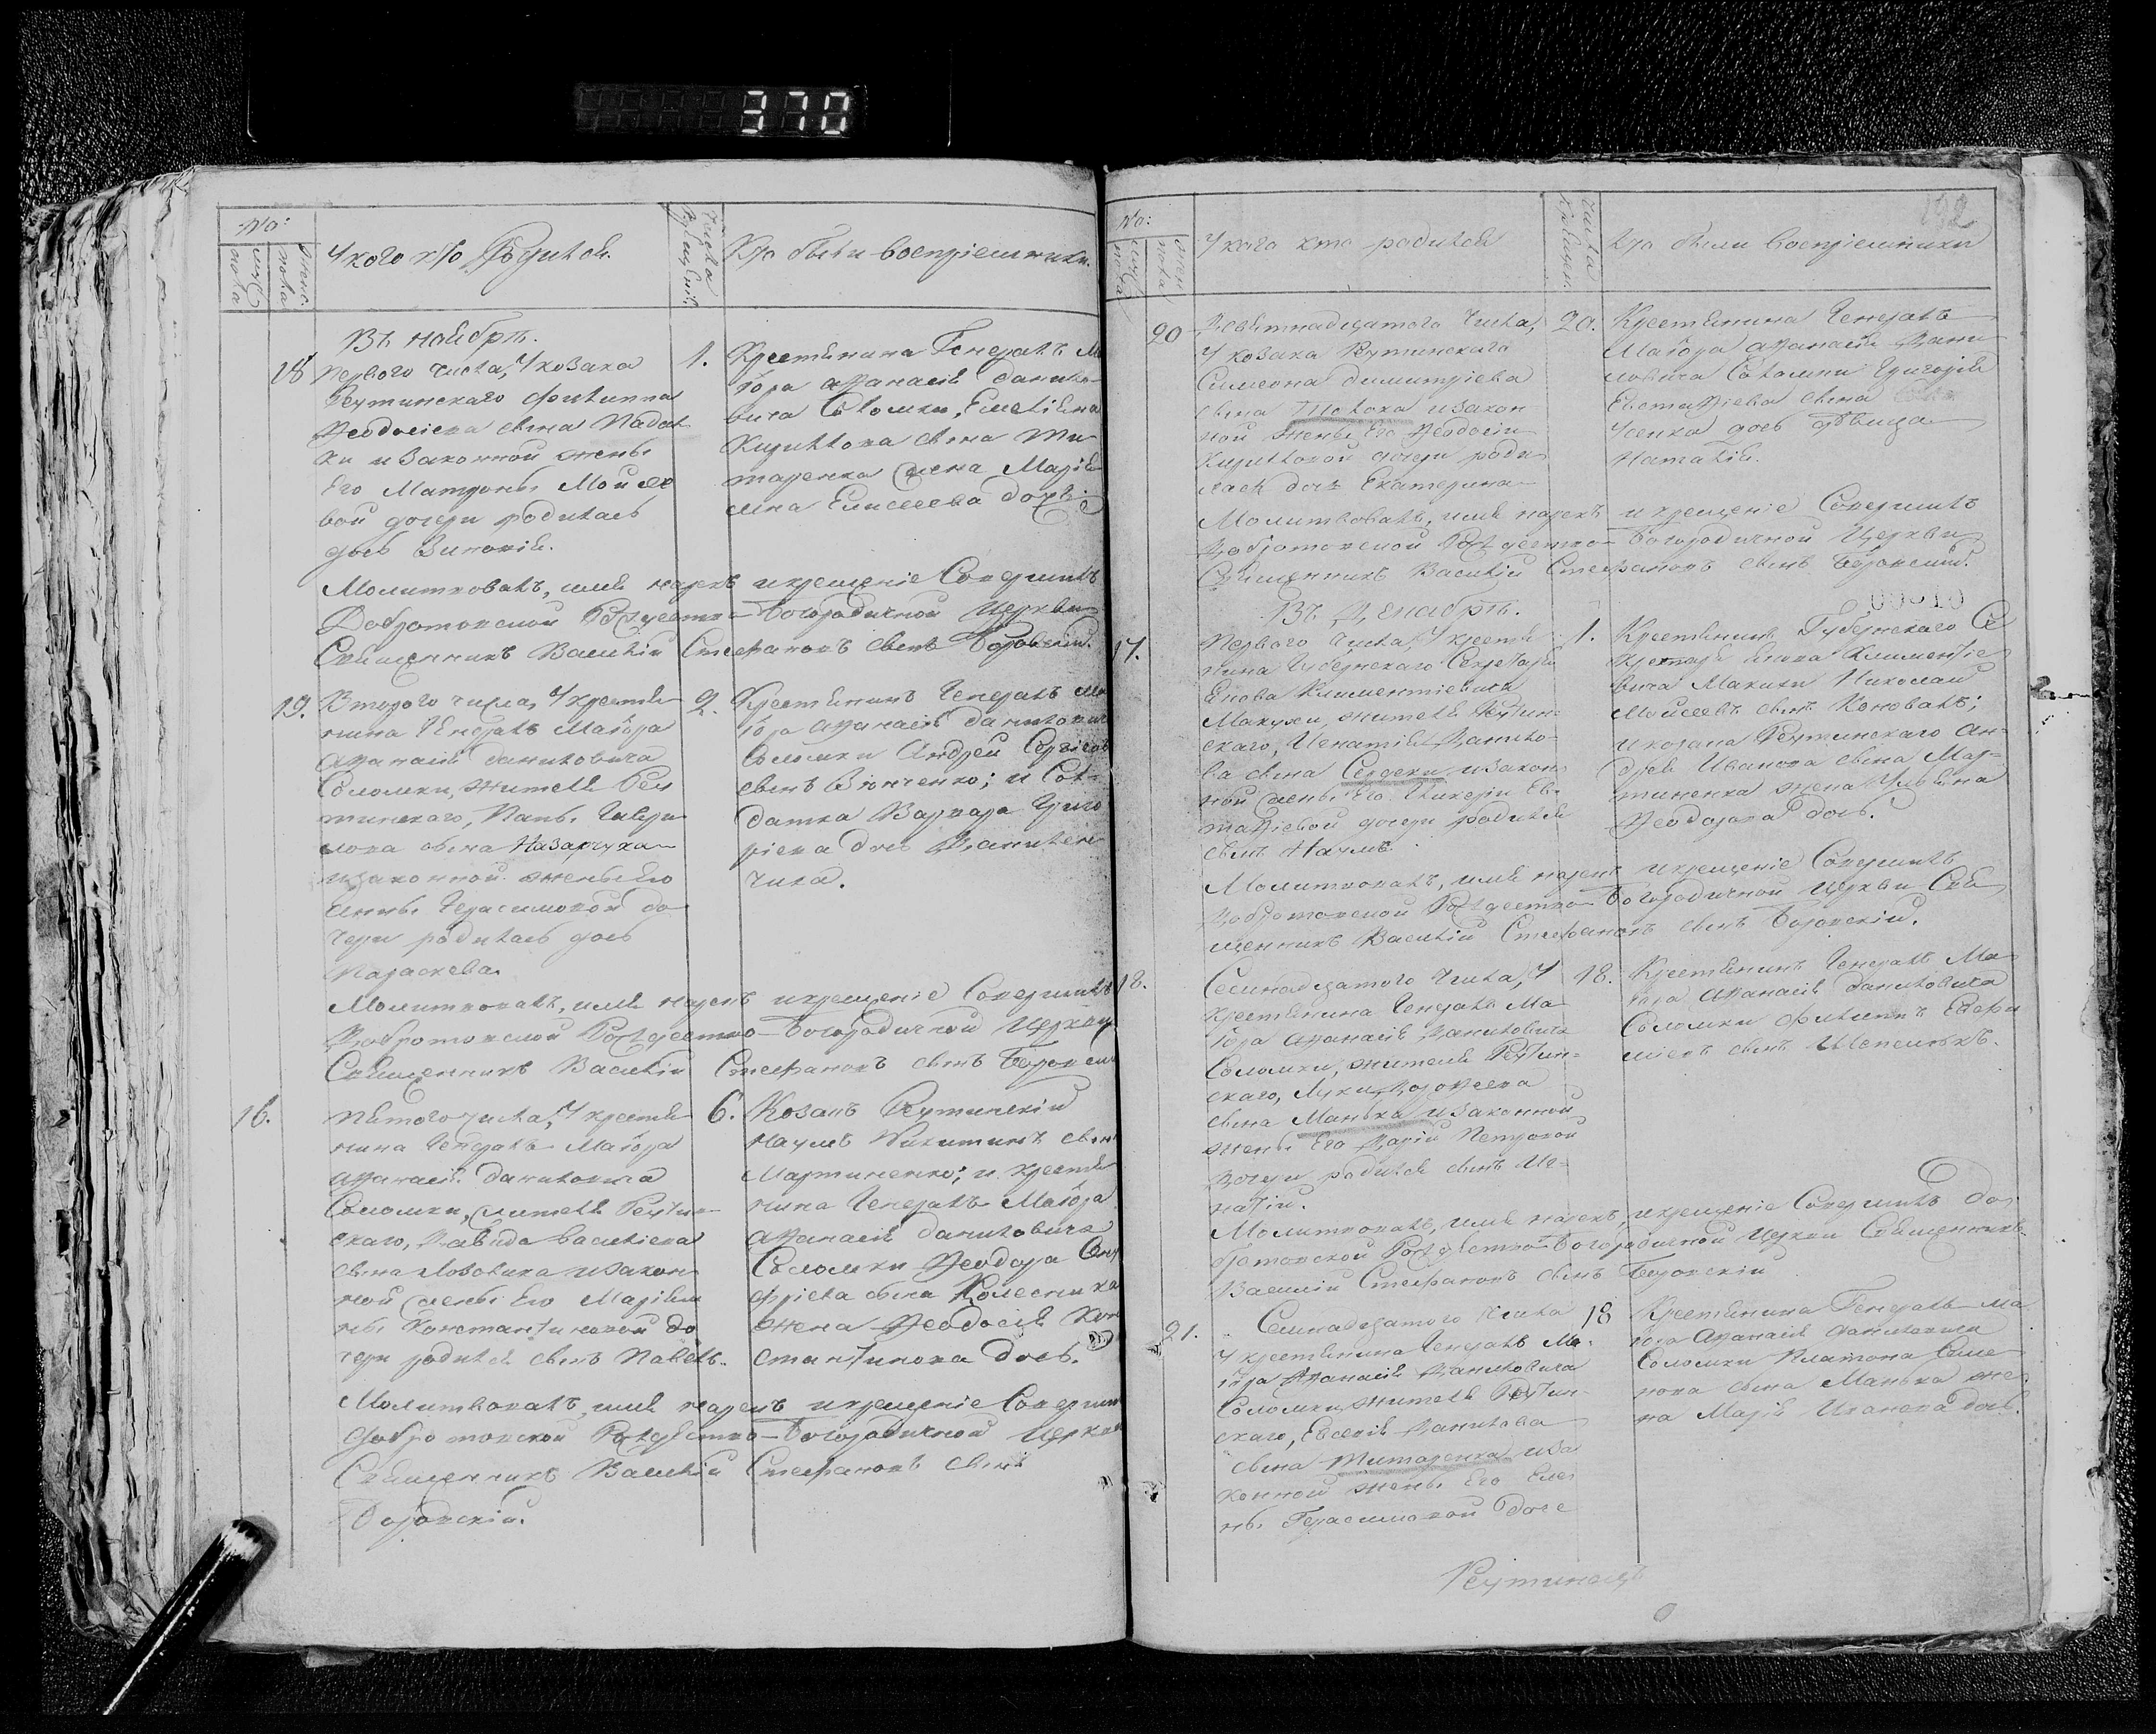 370
No:
мужеска
женска
У кого кто родился.
Числа крещенія
Кто были воспріемники.
Въ ноябрѣ.
18 Перваго числа, У козака
Реутинскаго Филиппа
Ѳеодосіева сына Падал
ки и законной жены
Его Матроны Мойсее
вой дочери родилась
дочь Зиновія.
1. Крестянина Генералъ М
аіора Афанасія Данило
вича Соломки, Емеліяна
Кирилова сына Ти
таренка жена Марія
мна Елисеева дочь.
Молитвовалъ, имя нарекъ и крещеніе Совершилъ
Добротовской Рождество-Богородичной Церкви
Священникъ Василій Стефановъ сынъ Боровскій.
19. Втораго числа, У крестя
нина Генералъ Маіора
Афанасія Даниловича
Соломки, жителя Реу
тинскаго,
сына Назарчука
и законной жены Его
Анны Герасимовой до
чери родилась дочь
Параскева.
2. Крестянинъ Генералъ Ма
іора Афанасія Данилович
Соломки Андрей Сергіев
сынъ; и Сол
датка Варвара Григо
ріева дочь Данилен
чиха.
Молитвовалъ, имя нарекъ и крещеніе Совершилъ
Добротовской Рождество-Богородичной Церкви
Священникъ Василій Стефановъ сынъ Боровскі
16. Пятого числа, У крестя
нина Генералъ Маіора
Афанасія Даниловича
Соломки, жителя Реутин
скаго, Давида Василіева
сына Лозовика и закон
ной жены Его Маріям
ны Константиновой до
чери родился сынъ Павелъ.
6. Козакъ Реутинскій
Наумъ Никитинъ сынъ
Мартиненко; и крестя
нина Генералъ Маіора
Афанасія Даниловича
Соломки Ѳеодора Ону
фріева сына Колесника
жена Ѳеодосія Кон
стантинова дочь.
Молитвовалъ, имя нарекъ и крещеніе Соверши
Добротовской Рождество-Богородичной Церкви
Священникъ Василій Стефановъ сынъ
Боровскій.
192
No:
мужеска
женска
У кого кто родился
Числа крещен.
Кто были воспріемники
20 Девятнадцатого числа,
У козака Реутинскаго
Симеона Димитріева
сына и закон
ной жены Его Ѳеодосіи
Кириловой дочери роди
лась дочь Екатерина
20. Крестянина Генералъ
Маіора Афанасія Дани
ловича Соломки Григорія
Евстафіева сына
Усенка дочь Дѣвица
Наталія.
Молитвовалъ, имя нарекъ и крещеніе Совершилъ
Добротовской Рождество-Богородичной Церкви
Священникъ Василій Стефановъ сынъ Боровскій.
Въ Декабрѣ.
17. Перваго числа, У крестя
нина Губернскаго Секретаря
Енова Климентіевича
Макухи, жителя Реутин
скаго, Игнатія Данило
ва сына Сердеки и закон
ной жены Его Гликеріи Ев
стафіевой дочери родился
сынъ Наумъ.
1. Крестянинъ Губернскаго Се
кретаря Енова Климентіе
вича Макухи Николай
Мойсеевъ сынъ Коновалъ;
и козака Реутинскаго Ан
дрея Иванова сына Мар
тиненка жена Уліяна
Ѳеодорова дочь.
Молитвовалъ, имя нарекъ и крещеніе Совершилъ
Добротовской Рождество-Богородичной Церкви Свя
щенникъ Василій Стефановъ сынъ Боровскій.
18. Семнадцатого числа, У
крестянина Генералъ Ма
іора Афанасія Даниловича
Соломки, жителя Реутин
скаго, Луки Дорофеева
сына Манька и законной
жены Его Дарій Петровой
дочери родился сынъ Иг
натій.
18. Крестянинъ Генералъ Ма
іора Афанасія Даниловича
Соломки Филиппъ Евфи
міевъ сынъ.
Молитвовалъ, имя нарекъ, и крещеніе Совершилъ До
бротовской Рождество-Богородичной Церкви Священникъ
Василій Стефановъ сынъ Боровскій
21. Семнадцатого числа
У крестянина Генералъ Ма
іора Афанасія Даниловича
Соломки, жителя Реутин
скаго, Евсевія Данилова
сына Титаренка и за
конной жены Его Еле
ны Герасимовой доче
18 Крестянина Генералъ Ма
іора Афанасія Даниловича
Соломки Платона Семе
нова сына Манька же
на Марія Иванова дочь.